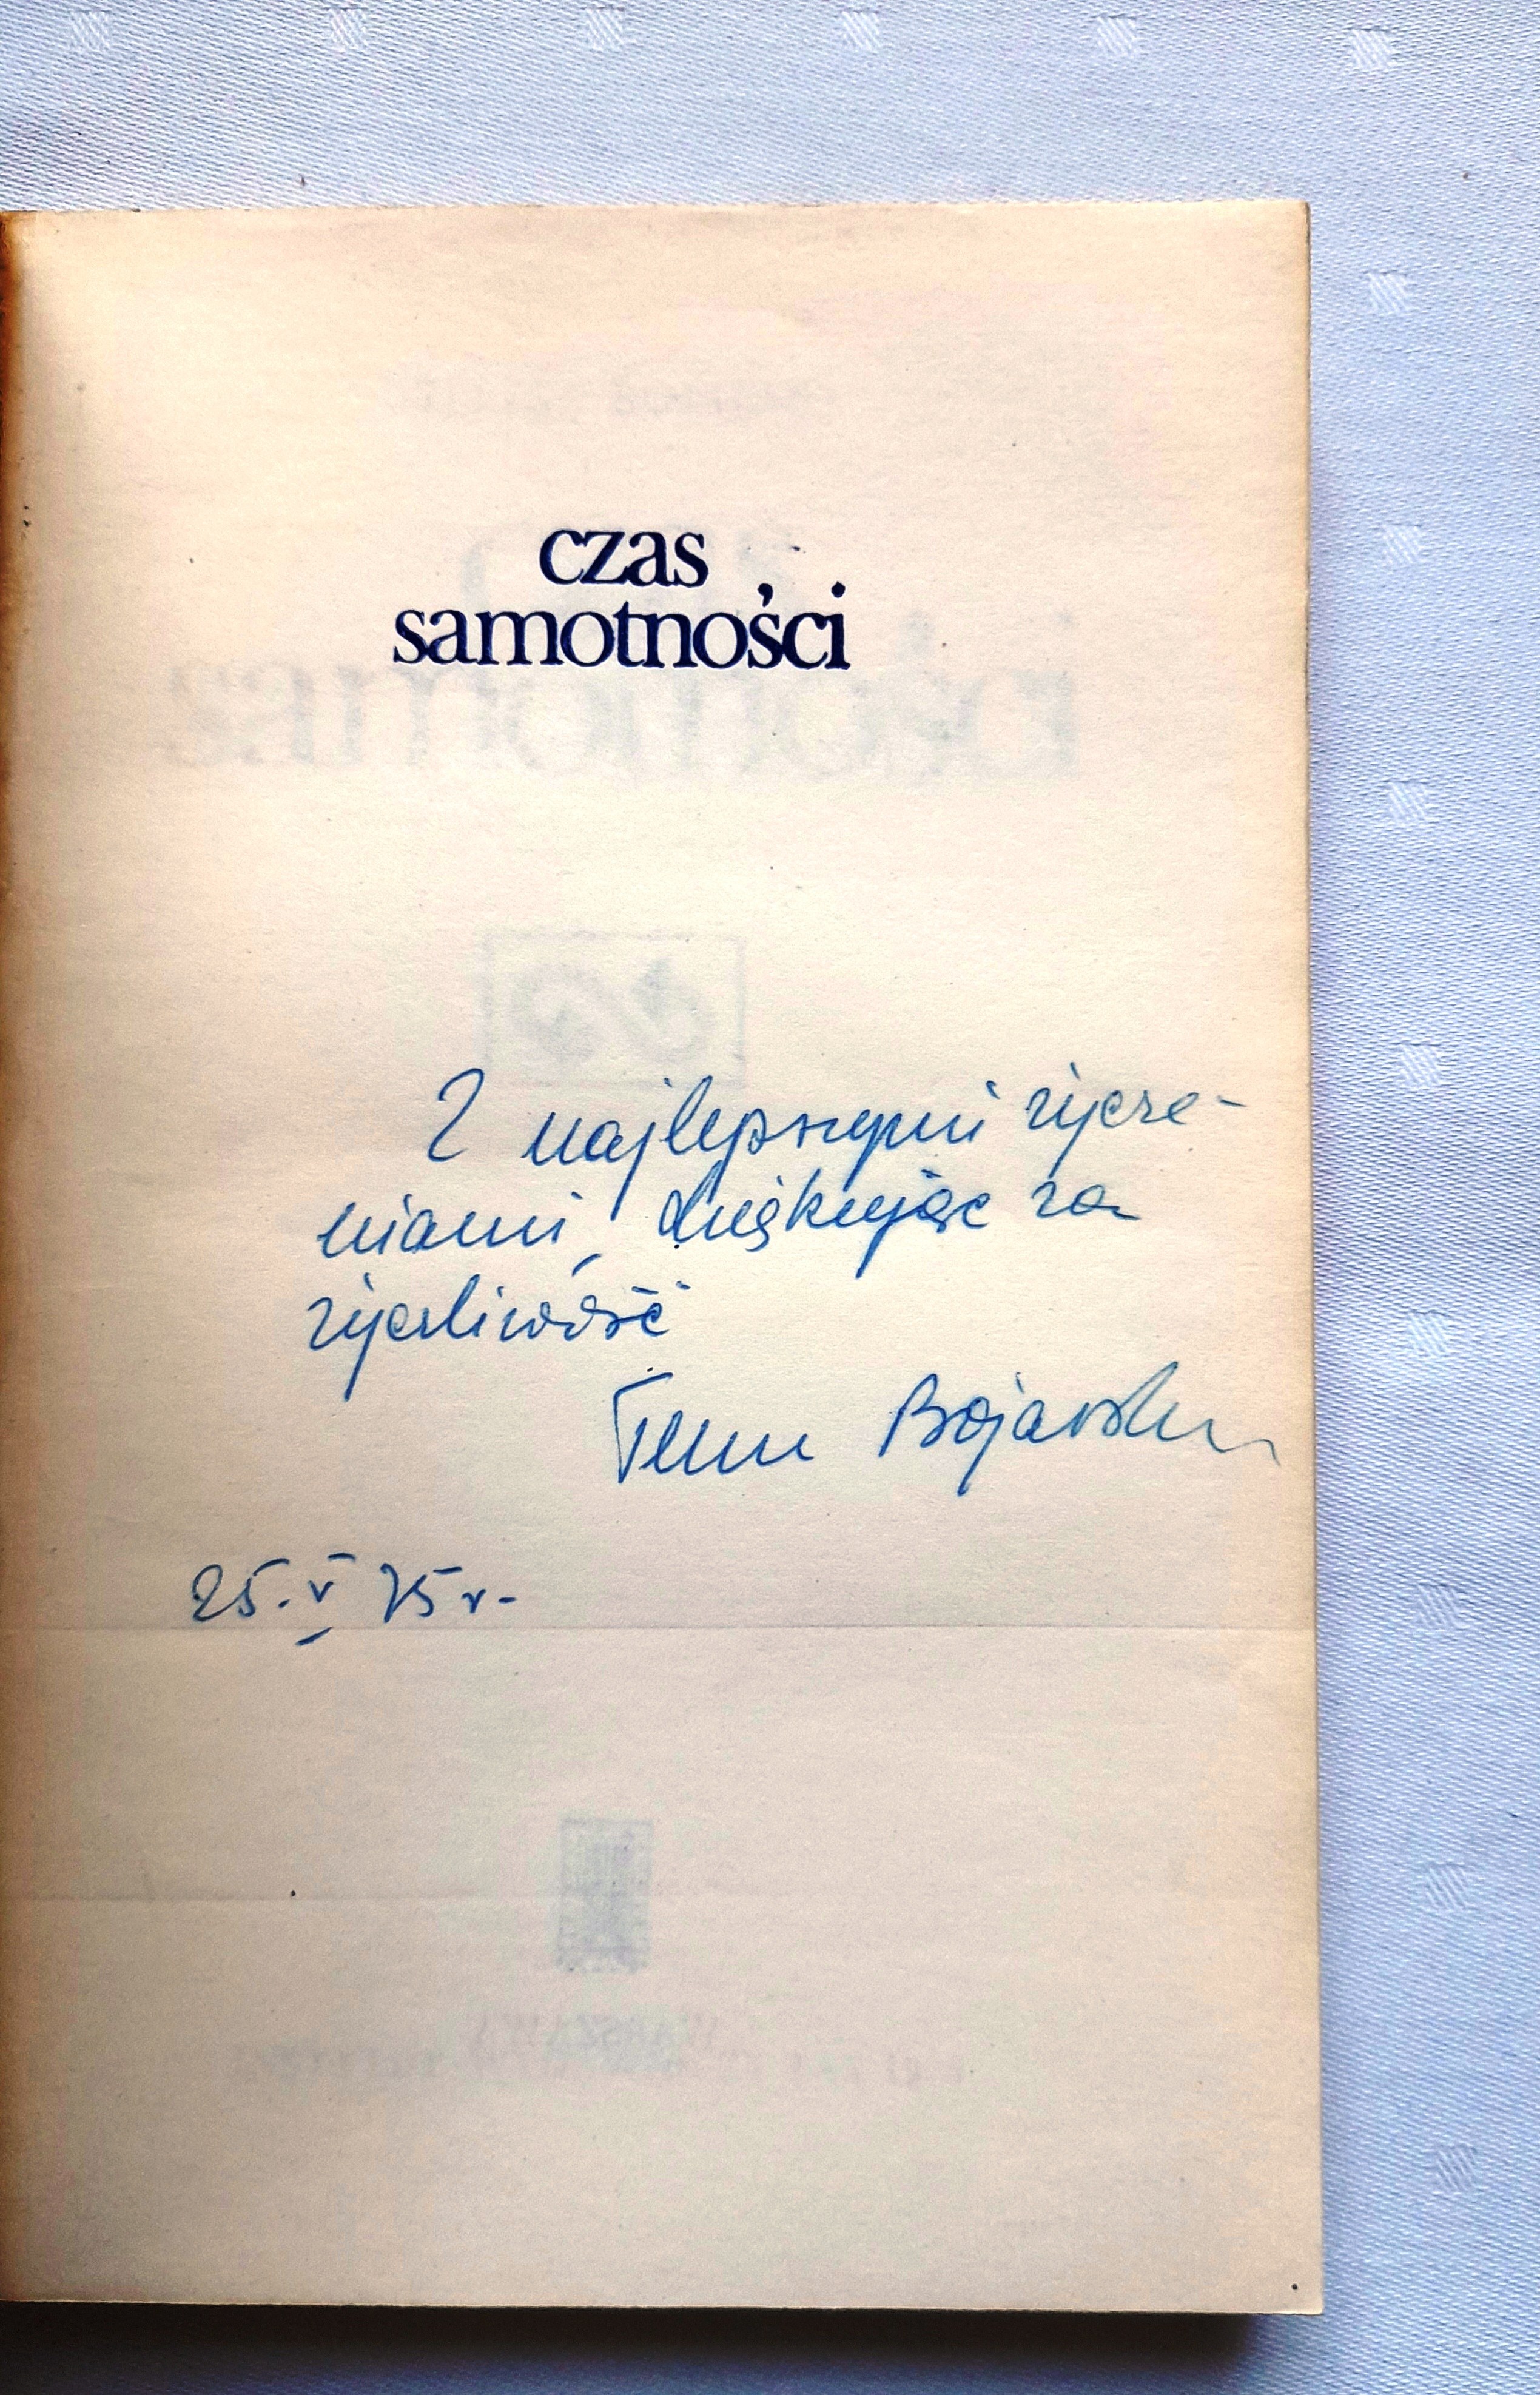 czas
samotności
Z najlepszymi życze-
niami, dziękując za
życzliwość
Bojarska
25.V 75 r.